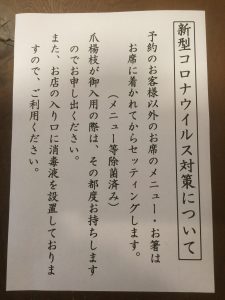 新型コロナウイルス対策について
予約のお客様以外のお席のメニュー・お箸は
お席に着かれてからセッティングします。
(メニュー等除菌済み)
爪楊枝が御入用の際は、その都度お持ちします
のでお申し出ください。
また、お店の入り口に消毒液を設置しておりま
すので、ご利用ください。